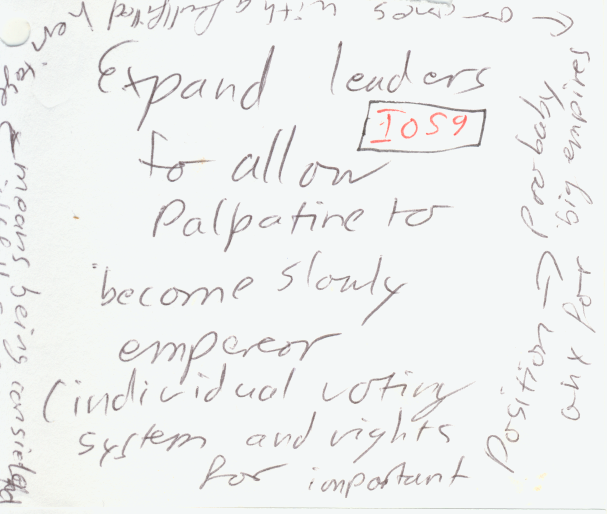 Expand leaders
IOS9
to allow
Palpatine to
become slowly
empereor
(individual voting
system and rights
for important
Position → Probaby
onx for big empires
or ones with a fullfilled
← means being consieled